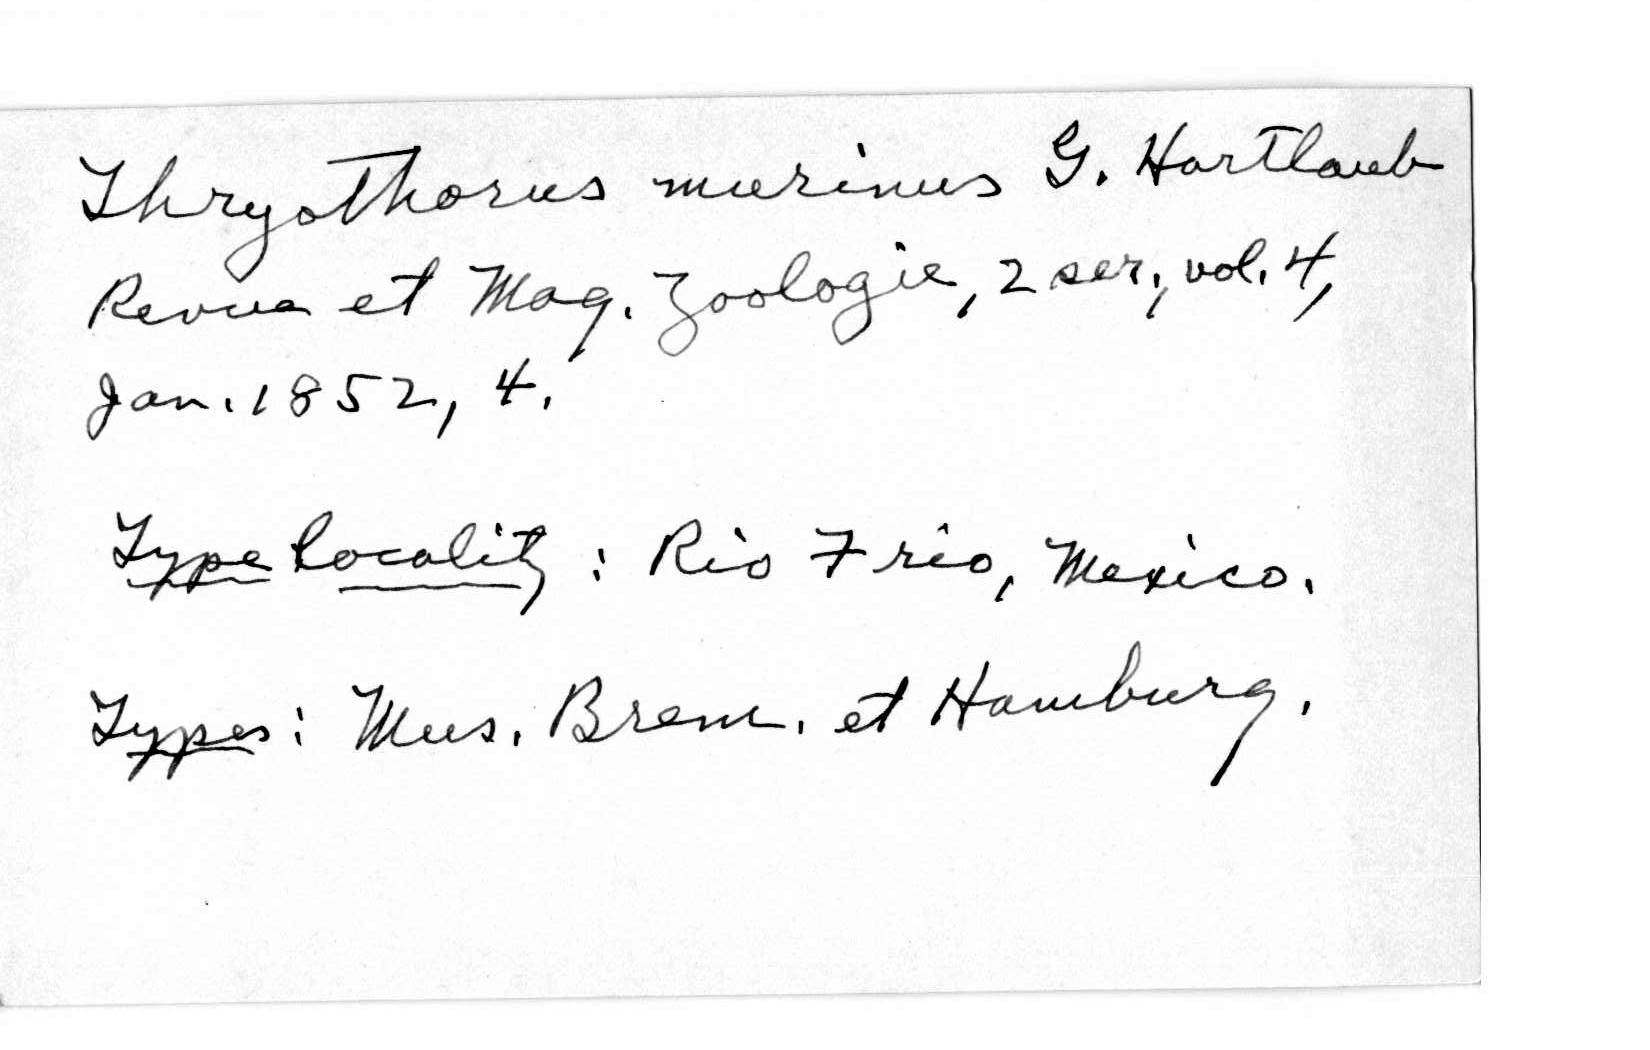 Thryothorus murinus G. Hartlaub
Revue et Mag. Zoologie, 2 ser., vol. 4,
Jan. 1852, 4.
Type locality: Rio Frio, Mexico.
Types: Mus. Brem. et Hamburg.